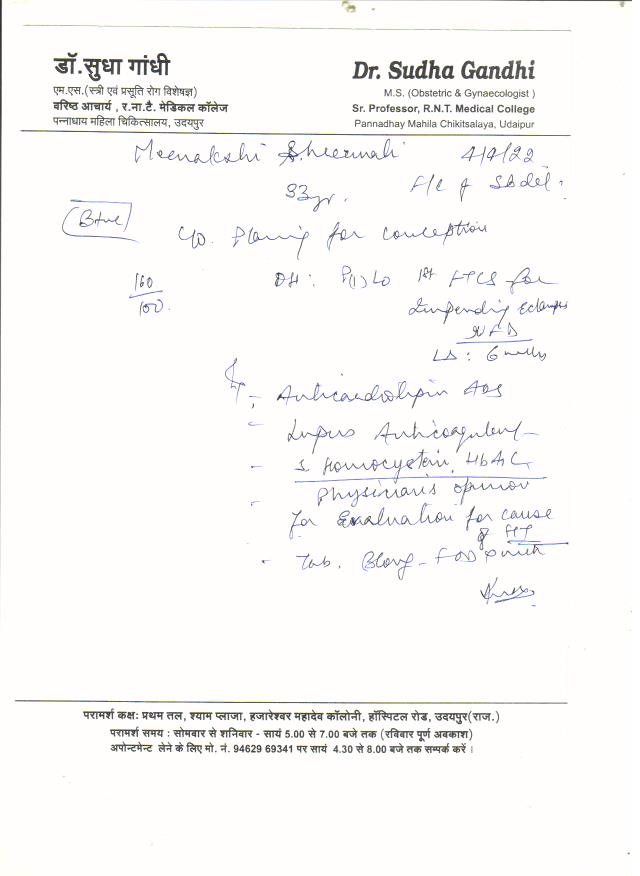 डॉ.सुधा गांधी
Dr. Sudha Gandhi
एम.एस.(स्त्री एवं प्रसूति रोग विशेषज्ञ)
M.S. (Obstetric & Gynaecologist )
वरिष्ठ आचार्य , र.ना.टै. मेडिकल कॉलेज
Sr. Professor, R.N.T. Medical College
पन्नाधाय महिला चिकित्सालय, उदयपुर
Pannadhay Mahila Chikitsalaya, Udaipur
Meenakshi 4/9/22
33yr. F/c of
B+ve
c/o. Planing for conception
160/100.
OH: P(1)L0 1st FTCS for
Impending Eclampsia
NFD
LD: 6
Anticardiolipin ABS
- Lupus Anticoagulent
- S Homocystein, HbA1C
- Physician's opinion
for Evaluation for cause
of HT
- Tab.
परामर्श कक्षः प्रथम तल, श्याम प्लाजा, हजारेश्वर महादेव कॉलोनी, हॉस्पिटल रोड, उदयपुर(राज.)
परामर्श समय : सोमवार से शनिवार - सायं 5.00 से 7.00 बजे तक (रविवार पूर्ण अवकाश)
अपोन्टमेन्ट लेने के लिए मो. नं. 94629 69341 पर सायं 4.30 से 8.00 बजे तक सम्पर्क करें ।